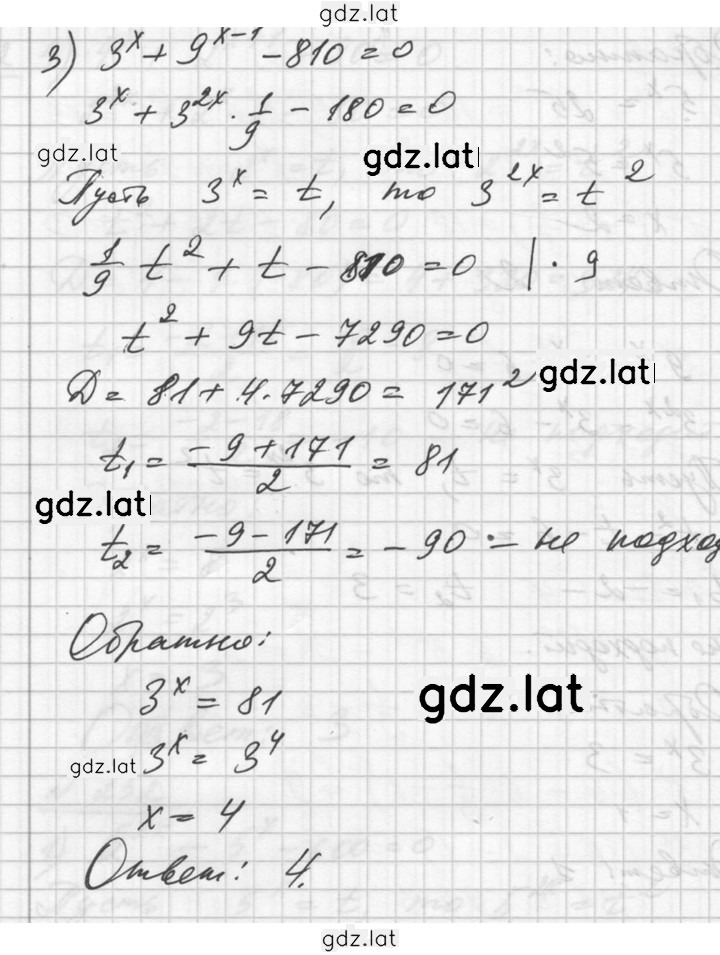 gdz.lat
3) 3^x + 9^(x-1) - 810 = 0
3^x + 3^(2x) · 1/9 - 180 = 0
gdz.lat gdz.lat
Пусть 3^x = t, то 3^(2x) = t^2
1/9 t^2 + t - 810 = 0 | · 9
t^2 + 9t - 7290 = 0
D = 81 + 4·7290 = 171^2 gdz.lat
t₁ = (-9+171)/2 = 81
gdz.lat
t₂ = (-9-171)/2 = -90 - не подход
Обратно:
3^x = 81 gdz.lat
gdz.lat 3^x = 3^4
x = 4
Ответ: 4.
gdz.lat